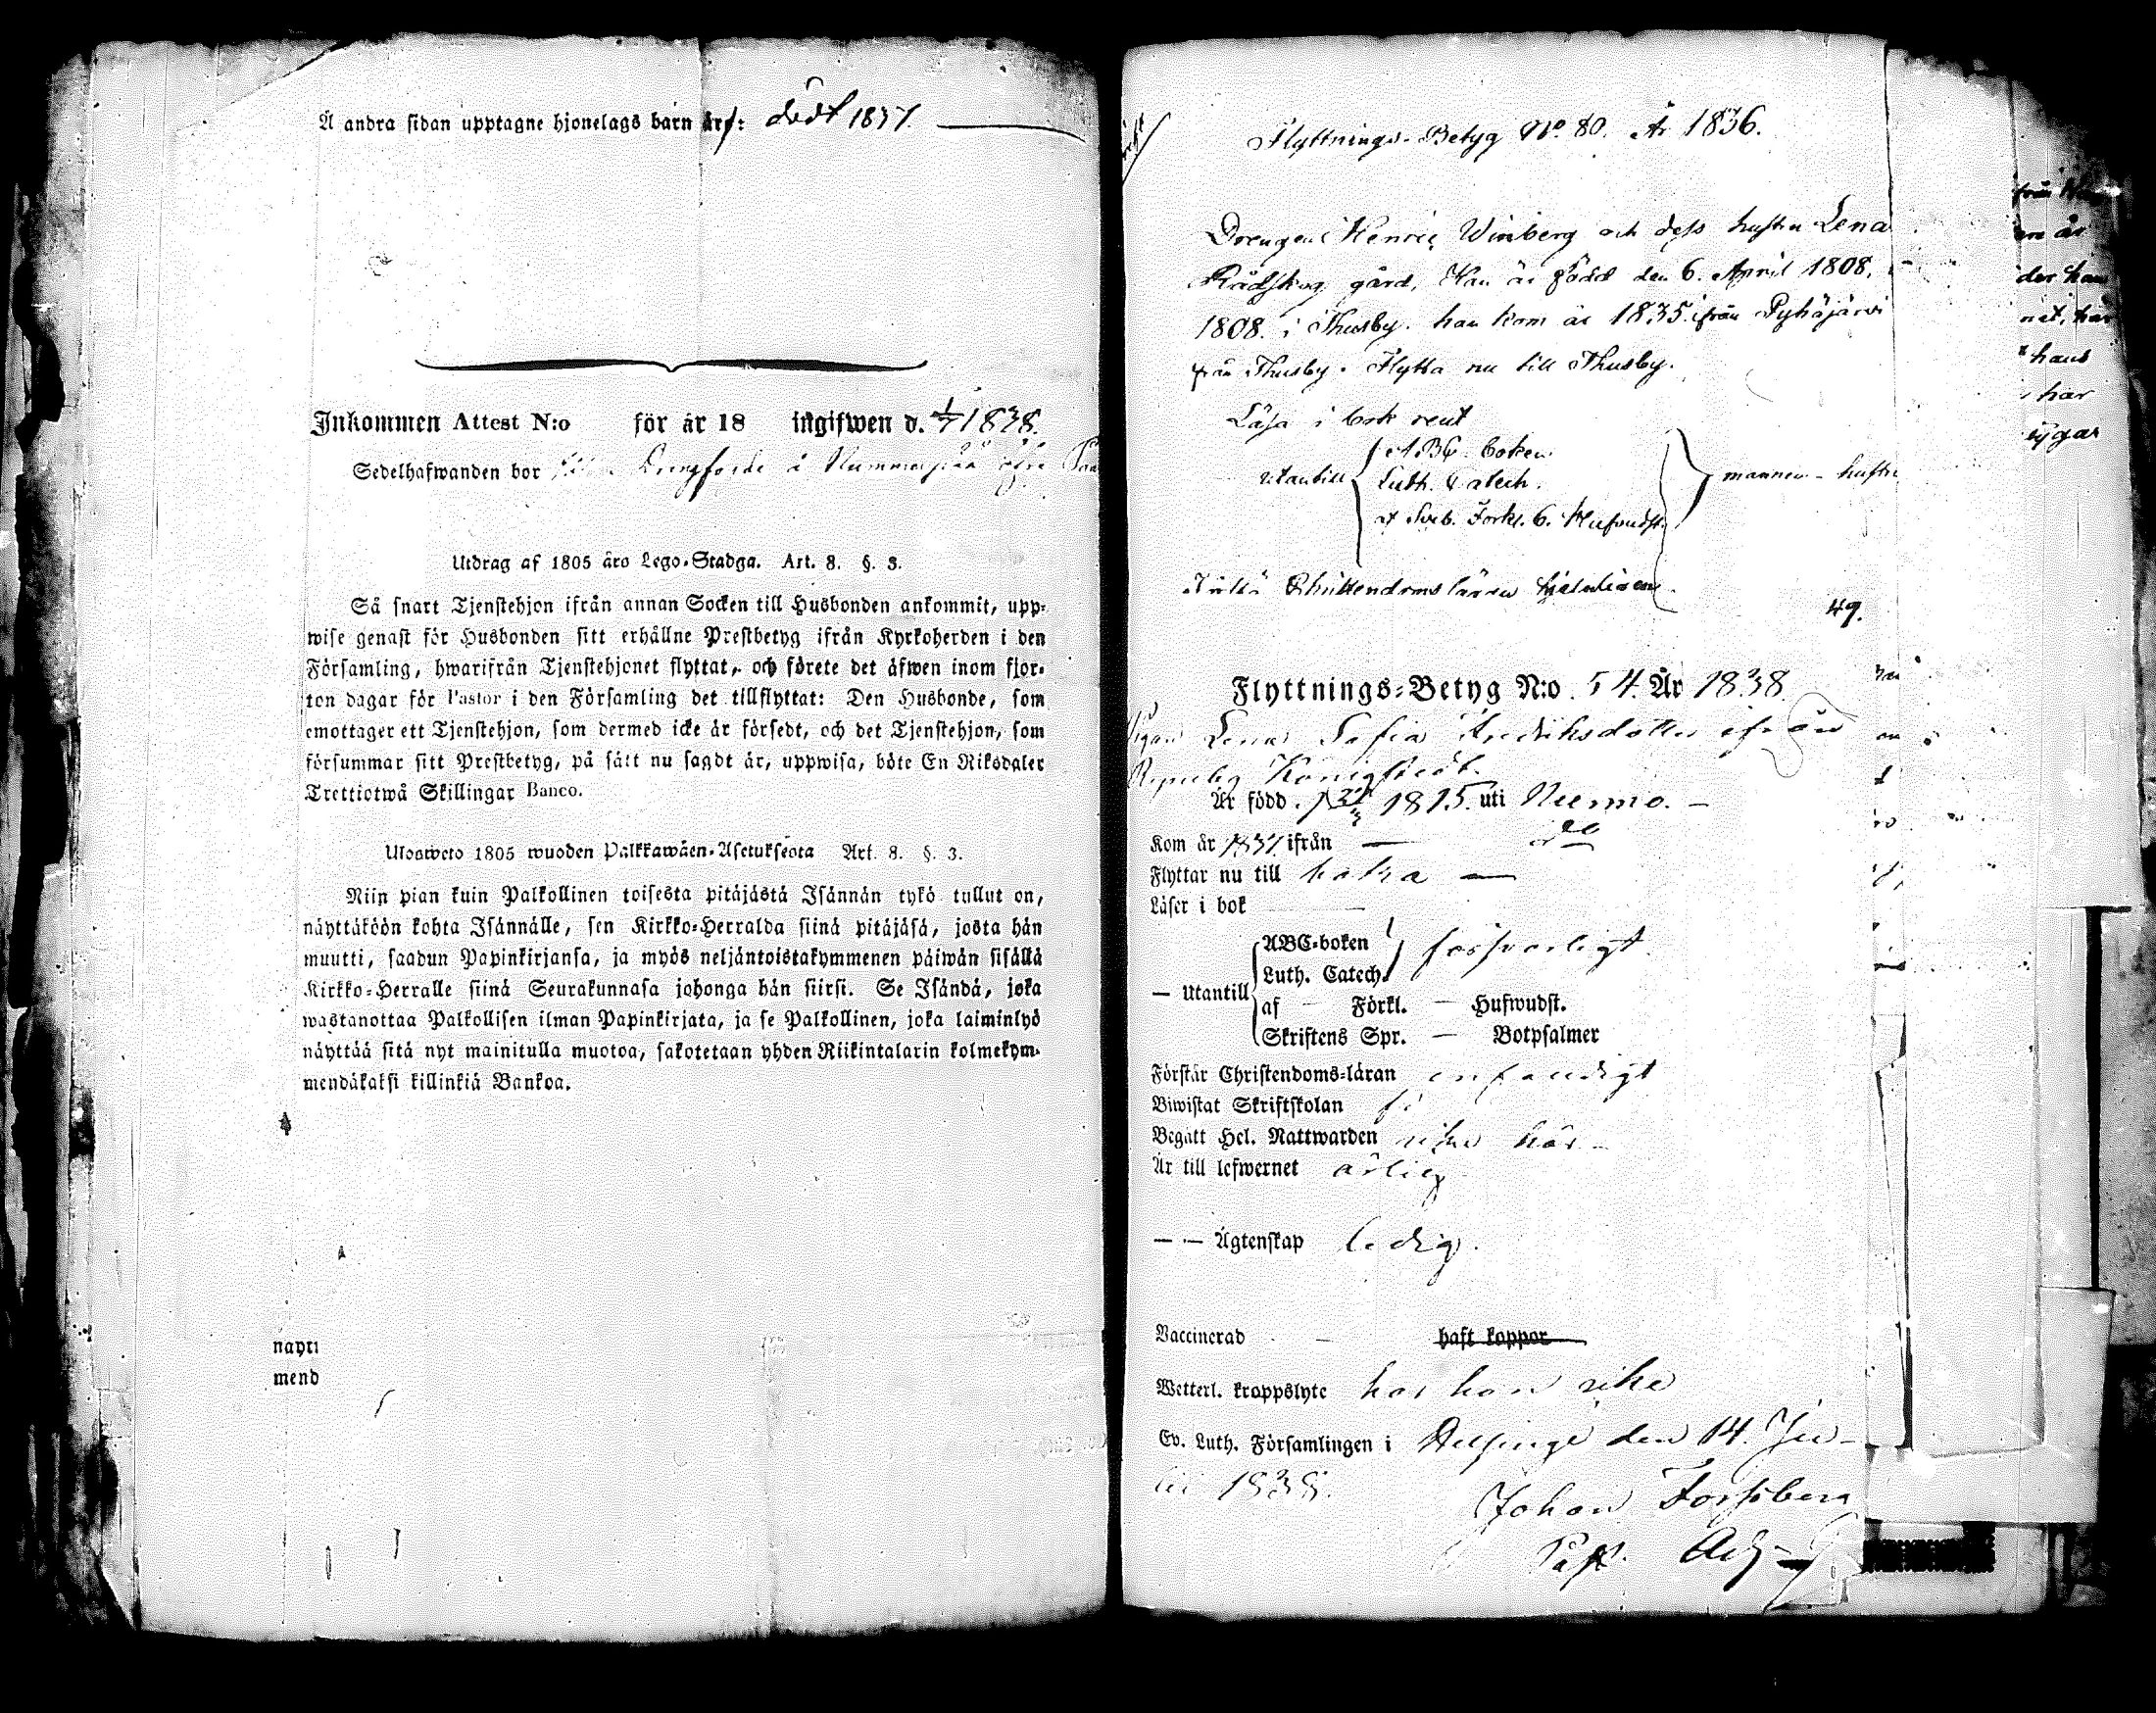 Å andra sidan upptagne hjonelags barn är: dödt 1837.
Inkommen Attest N:o för år 18 ingifwen d. 1/7 1838.
Sedelhafwanden bor å
Utdrag af 1805 års Lego-Stadga. Art. 8. §. 3.
Så snart Tjenstehjon ifrån annan Socken till Husbonden ankommit, upp-
wise genast för Husbonden sitt erhållne Prestbetyg ifrån Kyrkoherden i den
Församling, hwarifrån Tjenstehjonet flyttat, och förete det äfwen inom fjor-
ton dagar för Pastor i den Församling det tillflyttat: Den Husbonde, som
emottager ett Tjenstehjon, som dermed icke är försedt, och det Tjenstehjon, som
försummar sitt Prestbetyg, på sätt nu sagdt är, uppwisa, böte En Riksdaler
Trettiotwå Skillingar Banco.
Ulosweto 1805 wuoden Palkkawäen-Asetuksesta Art. 8. §. 3.
Niin pian kuin Palkollinen toisesta pitäjästä Isännän tykö tullut on,
näyttäköön kohta Isännälle, sen Kirkko-Herralda siinä pitäjäsä, josta hän
muutti, saadun Papinkirjansa, ja myös neljäntoistakymmenen päiwän sisällä
Kirkko-Herralle siinä Seurakunnasa johonga hän siirsi. Se Isändä, joka
wastanottaa Palkollisen ilman Papinkirjata, ja se Palkollinen, joka laiminlyö
näyttää sitä nyt mainitulla muotoa, sakotetaan yhden Riikintalarin kolmekym-
mendäkaksi killinkiä Bankoa.
näyt
mend
Flyttnings-Betyg No. 80. År 1836.
Drengen Henric Winberg och dess hustru Lena
Rådskog gård, Han är född den 6. April 1808,
1808. i Thusby. han kom år 1835. ifrån Pyhäjärvi
från Thusby. Flytta nu till Thusby.
Läsa i bok rent
utantill ABC-boken
Luth. Catech.
af Sveb. Förkl. 6. Hufvudst.
mannen - hustru
Christendomsläran hjelpligen.
49.
Flyttnings-Betyg N:o 54. År 1838.
Pigan Lena Sofia Fredriksdotter ifrån
Königstedt.
Är född 1815. uti Nurmo. -
Kom år 1837 ifrån — do
Flyttar nu till
Läser i bok
— Utantill ABC-boken
Luth. Catech. försvarligt.
af — Förkl. — Hufwudst.
Skriftens Spr. — Botpsalmer
Förstår Christendoms-läran enfaldigt
Biwistat Skriftskolan
Begått Hel. Nattwarden icke här -
Är till lefwernet ärlig
— — Ägtenskap ledig.
Vaccinerad — haft koppor
Wetterl. kroppslyte har hon icke
Ev. Luth. Församlingen i Helsinge den 14. Ju-
lii 1838.
Johan Forssberg
Past. Adj.
från
är
der han
hans
har